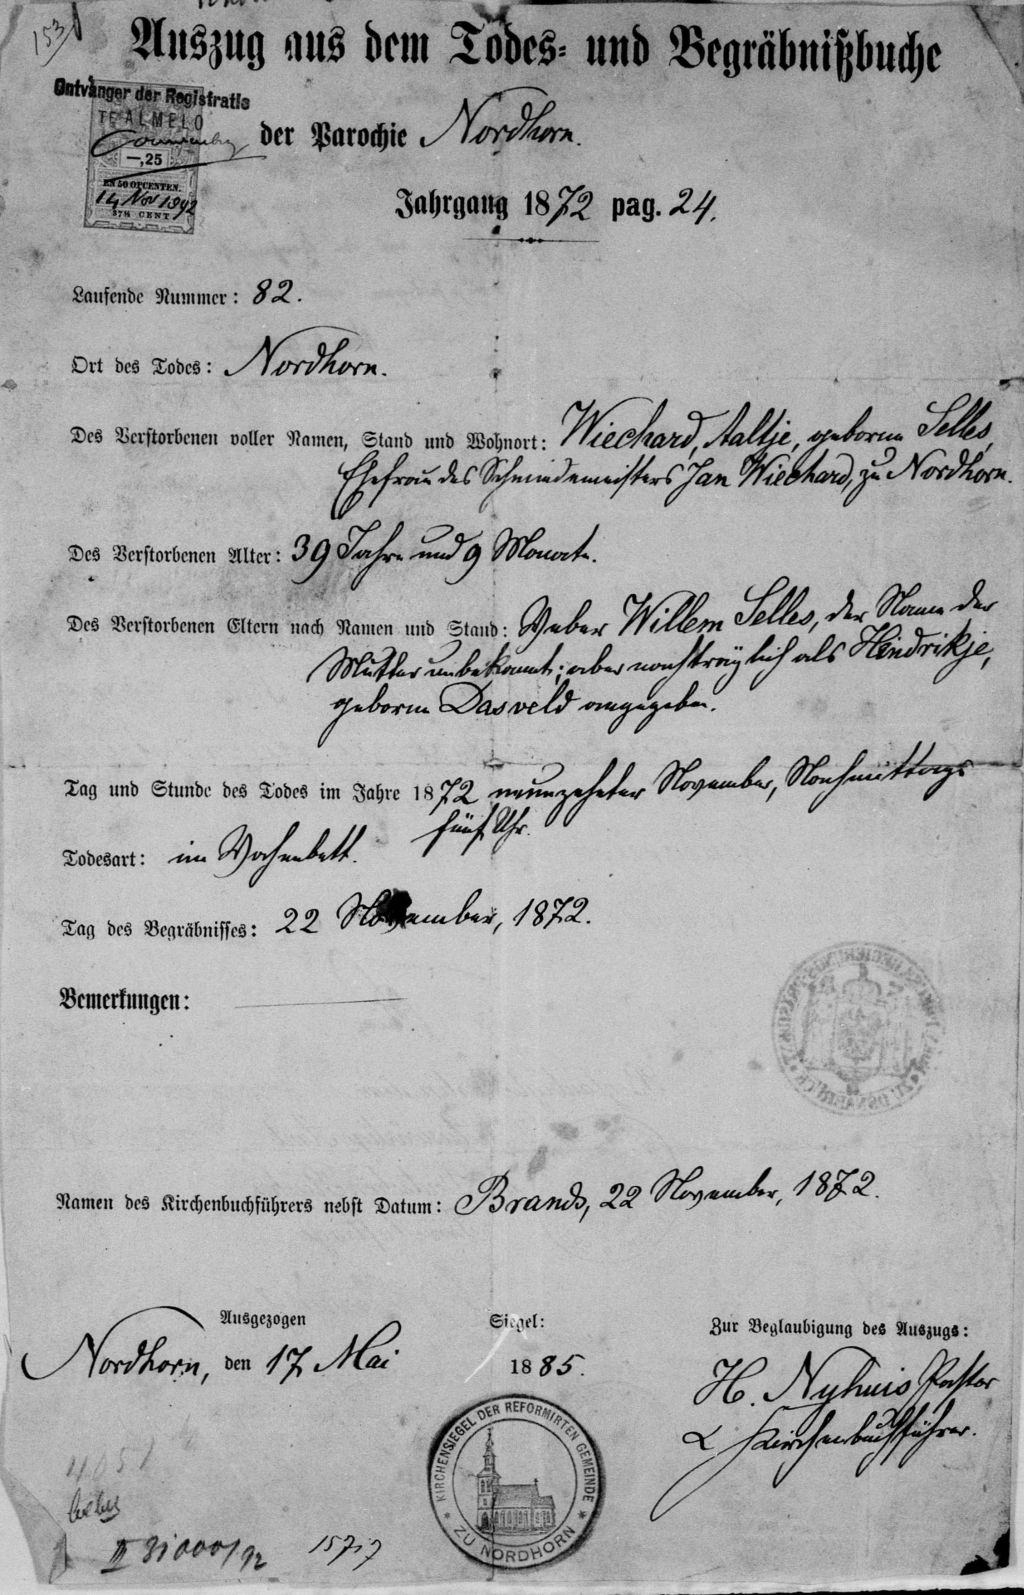 153
Auszug aus dem Todes- und Begräbnißbuche
Ontvanger der Registratie
TE ALMELO
—,25
EN 50 OPCENTEN.
14 Nov 1892
37½ CENT
der Parochie Nordhorn.
Jahrgang 1872 pag. 24.
Laufende Nummer: 82.
Ort des Todes: Nordhorn.
Des Verstorbenen voller Namen, Stand und Wohnort: Wiechard, Aaltje, geborne Selles,
Ehefrau des Schmiedemeisters Jan Wiechard, zu Nordhorn.
Des Verstorbenen Alter: 39 Jahre und 9 Monate.
Des Verstorbenen Eltern nach Namen und Stand: Weber Willem Selles, der Name der
Mutter unbekannt; aber nachträglich als Hindrikje,
geborne Dasveld angegeben.
Tag und Stunde des Todes im Jahre 1872 neunzehnter November, Nachmittags
fünf Uhr.
Todesart: im Wochenbett.
Tag des Begräbnisses: 22 November, 1872.
Bemerkungen:
Namen des Kirchenbuchführers nebst Datum: Brands, 22 November, 1872.
Ausgezogen
Nordhorn, den 17 Mai
Siegel:
1885.
Zur Beglaubigung des Auszugs:
H. Nyhuis Pastor
& Kirchenbuchführer.
KIRCHENSIEGEL DER REFORMIRTEN GEMEINDE
* ZU NORDHORN *
4051
II 31000/92 15717